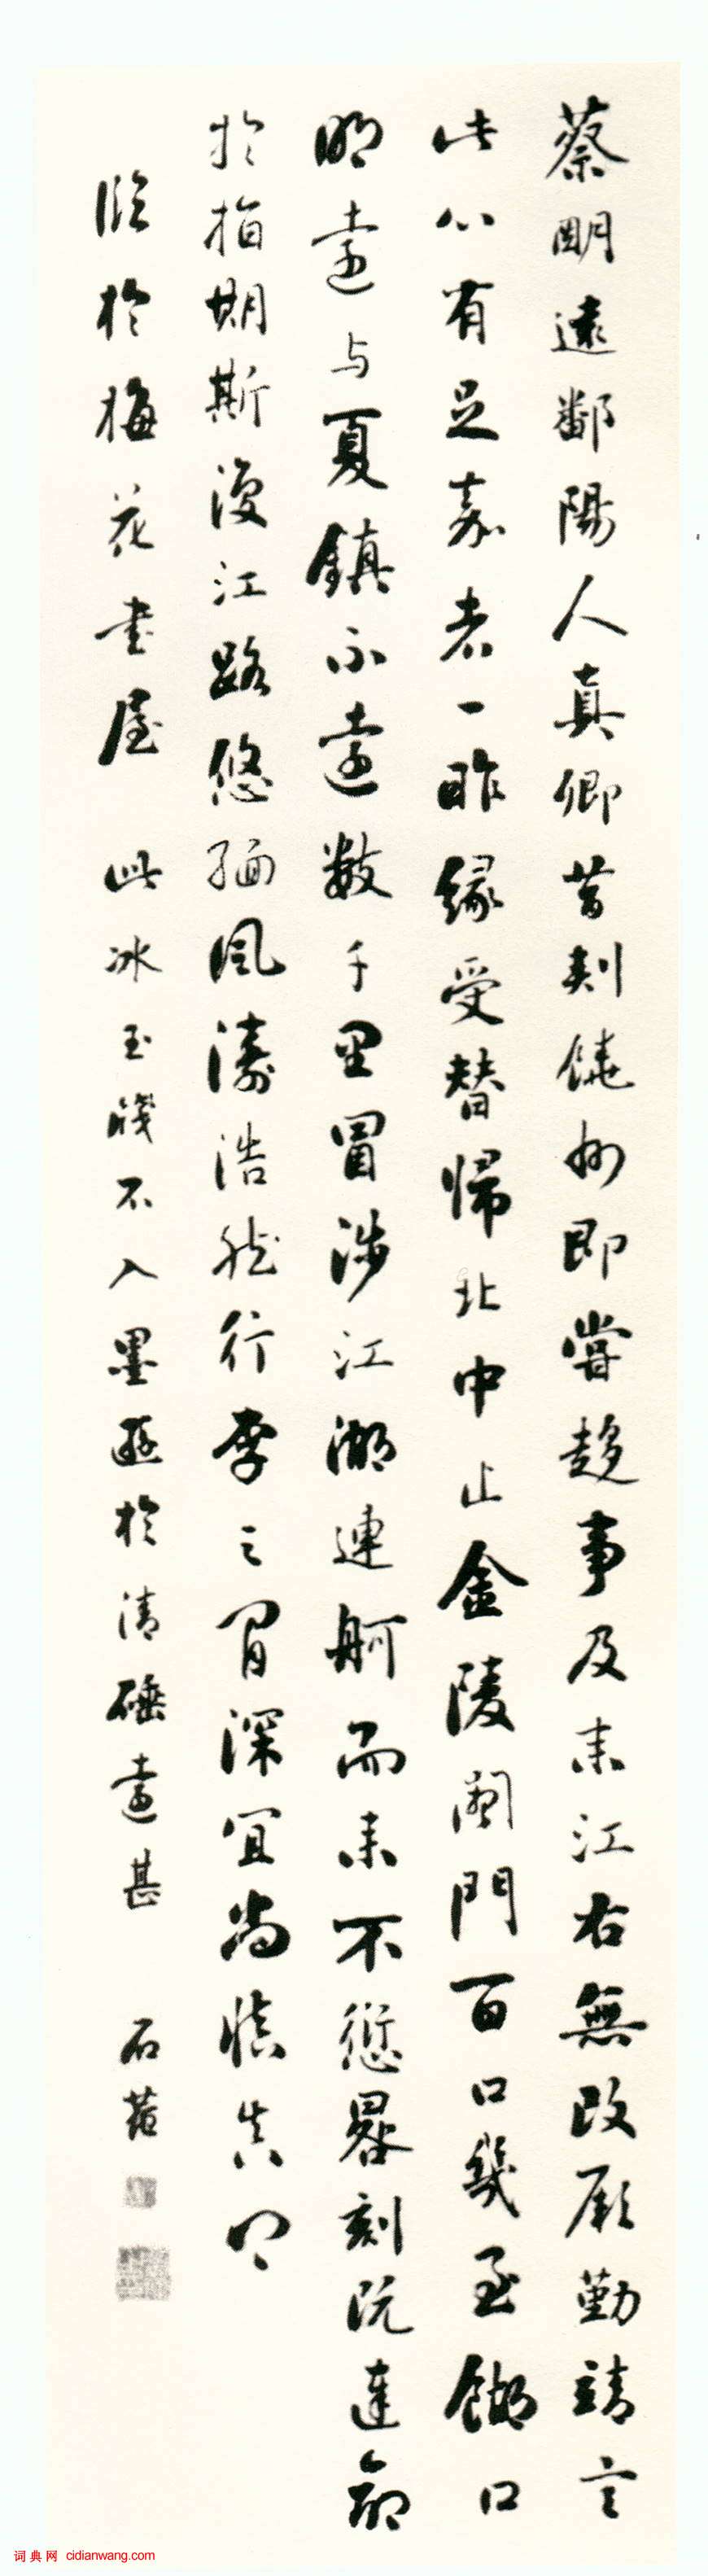 蔡明遠鄱陽人真卿昔刺饒州即嘗趍事及来江右無改厥勤靖言
此心有足嘉者一昨縁受替歸北中止金陵闔門百口幾至餬口
明遠与夏鎮不遠數千里冒涉江湖連舸而来不愆晷刻既達命
於指期斯復江路悠緬風濤浩然行李之間深宜尚慎真卿
臨於梅花書屋 此冰玉牋不入墨遜於清硾遠甚 石菴
词典网 cidianwang.com